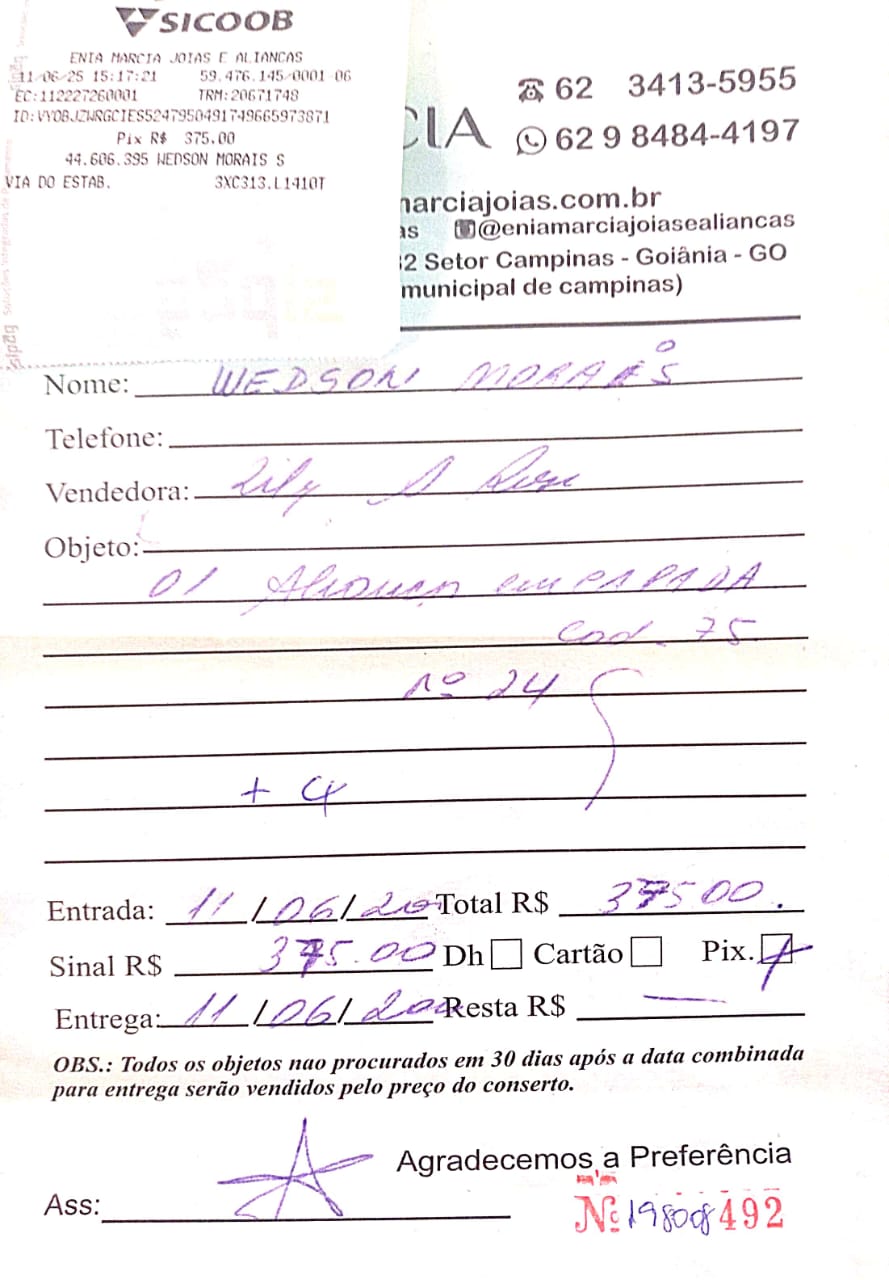 SICOOB
ENIA MARCIA JOIAS E ALIANCAS
11/06/25 15:17:21 59.476.145/0001-06
EC:112227260001 TRM:20671748
ID:VYOBJZWRGCIES5247950491749665973871
Pix R$ 375,00
44.606.395 WEDSON MORAIS S
VIA DO ESTAB. 3XC313.L1410T
sipag Soluções Integradas de
CIA
62 3413-5955
62 9 8484-4197
marciajoias.com.br
as @eniamarciajoiasealiancas
2 Setor Campinas - Goiânia - GO
municipal de campinas)
Nome: WEDSON MORAIS
Telefone:
Vendedora: Lily
Objeto:
01 Aliança emPAPADA
Cod. 75
nº 24
+ 4
Entrada: 11/06/20 Total R$ 37500.
Sinal R$ 375.00 Dh Cartão Pix.
Entrega: 11/06/20 Resta R$ —
OBS.: Todos os objetos nao procurados em 30 dias após a data combinada
para entrega serão vendidos pelo preço do conserto.
Agradecemos a Preferência
Ass:
Nº 19808 492